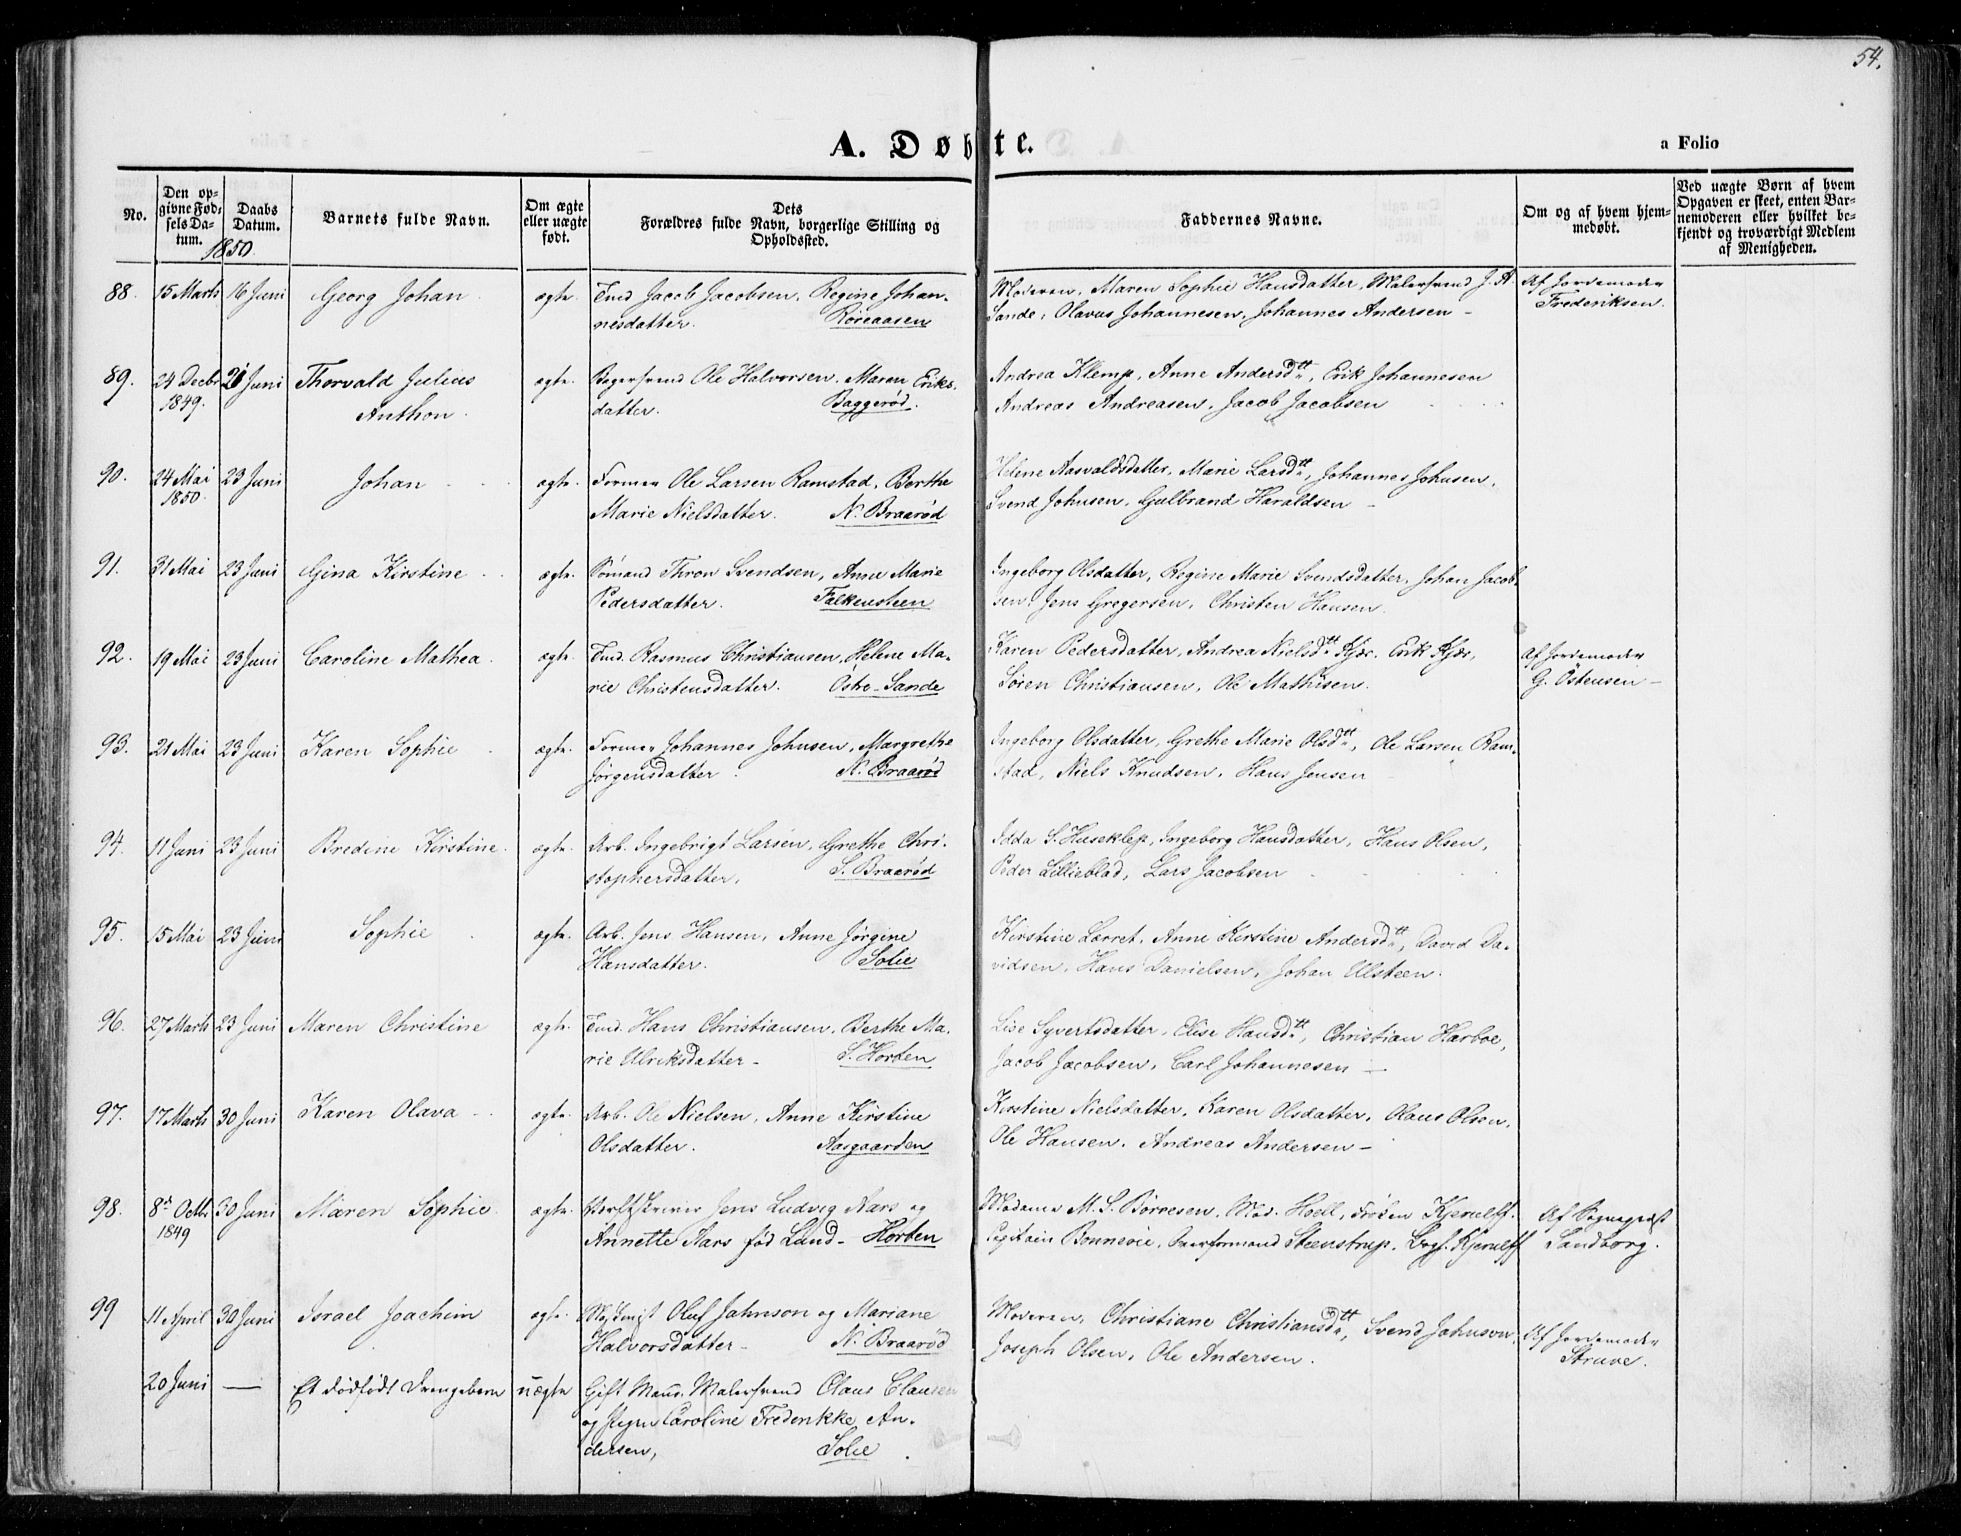 54.
A. Døbte.
a Folio
No.
Den op-
givne Fød-
sels Da-
tum.
Daabs
Datum.
1850.
Barnets fulde Navn.
Om ægte
eller uægte
født.
Dets
Forældres fulde Navn, borgerlige Stilling og
Opholdssted.
Faddernes Navne.
Om og af hvem hjem-
medøbt.
Ved uægte Børn af hvem
Opgaven er skeet, enten Bar-
nemoderen eller hvilket be-
kjendt og troværdigt Medlem
af Menigheden.
88. 15 Marts 16 Juni Georg Johan ægte. Jacob Jacobsen, Regine Johan- Moderen, Maren Sophie Hansdatter, Malersvend J. A. Af Jordemoder
nesdatter. Røreaasen Sande, Olavus Johannesen, Johannes Andersen – Frederiksen.
89. 24 Decbr 21 Juni Thorvald Julius ægte. Ole Halvorsen, Maren Eriks- Andrea Klemp, Anne Andersdtt, Erik Johannesen
1849. Anthon. datter. Baggerød. Andreas Andreasen, Jacob Jacobsen
90. 24 Mai 23 Juni Johan ægte. Former Ole Larsen Ramstad, Berthe Helene Aasvaldsdatter, Marie Larsdtt, Johannes Johnsen,
1850. Marie Nielsdatter. N. Braarød Svend Johnsen, Gulbrand Haraldsen –
91. 31 Mai 23 Juni Gina Kirstine ægte. Sømand Thron Svendsen, Anne Marie Ingeborg Olsdatter, Regine Marie Svendsdatter, Johan Jacob-
Pedersdatter. Falkensteen sen, Jens Gregersen, Christen Hansen.
92. 19 Mai 23 Juni Caroline Mathea. ægte. Rasmus Christiansen, Helene Ma- Karen Pedersdatter, Andrea Nielsdtt Kjær, Erik Kjær, Af Jordemoder
rie Christensdatter. Østre-Sande Søren Christiansen, Ole Mathisen. G. Östensen –
93. 21 Mai 23 Juni Karen Sophie ægte. Former Johannes Johnsen, Margrethe Ingeborg Olsdatter, Grethe Marie Olsdtt, Ole Larsen Ram-
Jørgensdatter. N. Braarød stad, Niels Knudsen, Hans Jensen
94. 11 Juni 23 Juni Bredine Kirstine. ægte. Arb. Ingebrigt Larsen, Grethe Chri- Idda S. Huseklep, Ingeborg Hansdatter, Hans Olsen,
stophersdatter. S. Braarød Peder Lillieblad, Lars Jacobsen
95. 15 Mai 23 Juni Sophie ægte. Arb. Jens Hansen, Anne Jørgine Kirstine Lærret, Anne Kirstine Andersdtt, David Da-
Hansdatter. Solie vidsen, Hans Danielsen, Johan Ulsteen.
96. 27 Marts 23 Juni Maren Christine ægte. Hans Christiansen, Berthe Ma- Lise Syvertsdatter, Elise Hansdtt, Christian Harboe,
rie Ulriksdatter – S. Horten Jacob Jacobsen, Carl Johannesen –
97. 17 Marts 30 Juni Karen Olava ægte. Arb. Ole Nielsen, Anne Kirstine Kirstine Nielsdatter, Karen Olsdatter, Olaus Olsen,
Olsdatter. Aasgaarden Ole Hansen, Andreas Andersen –
98. 8de Octbr 30 Juni Maren Sophie. ægte. Værftskriver Jens Ludvig Aars og Madame M. S. Børresen, Mad. Hoell, Frøken Kjerulff, Af Sognepræst
1849 Annette Aars fød Lund – Horten Capitain Bonnevie, Steenstrup, Kjerulff Sandborg.
99 11 April 30 Juni Israel Joachim ægte. Oluf Johnson og Mariane Moderen, Christiane Christiansdtt, Svend Johnson, Af Jordemoder
Halvorsdatter – N. Braarød Joseph Olsen, Ole Andersen. Struve.
20 Juni — Et dødfødt Drengebarn uægte Gift Mand, Malersvend Olaus Clausen
og Caroline Frederikke An-
dersen, Solie